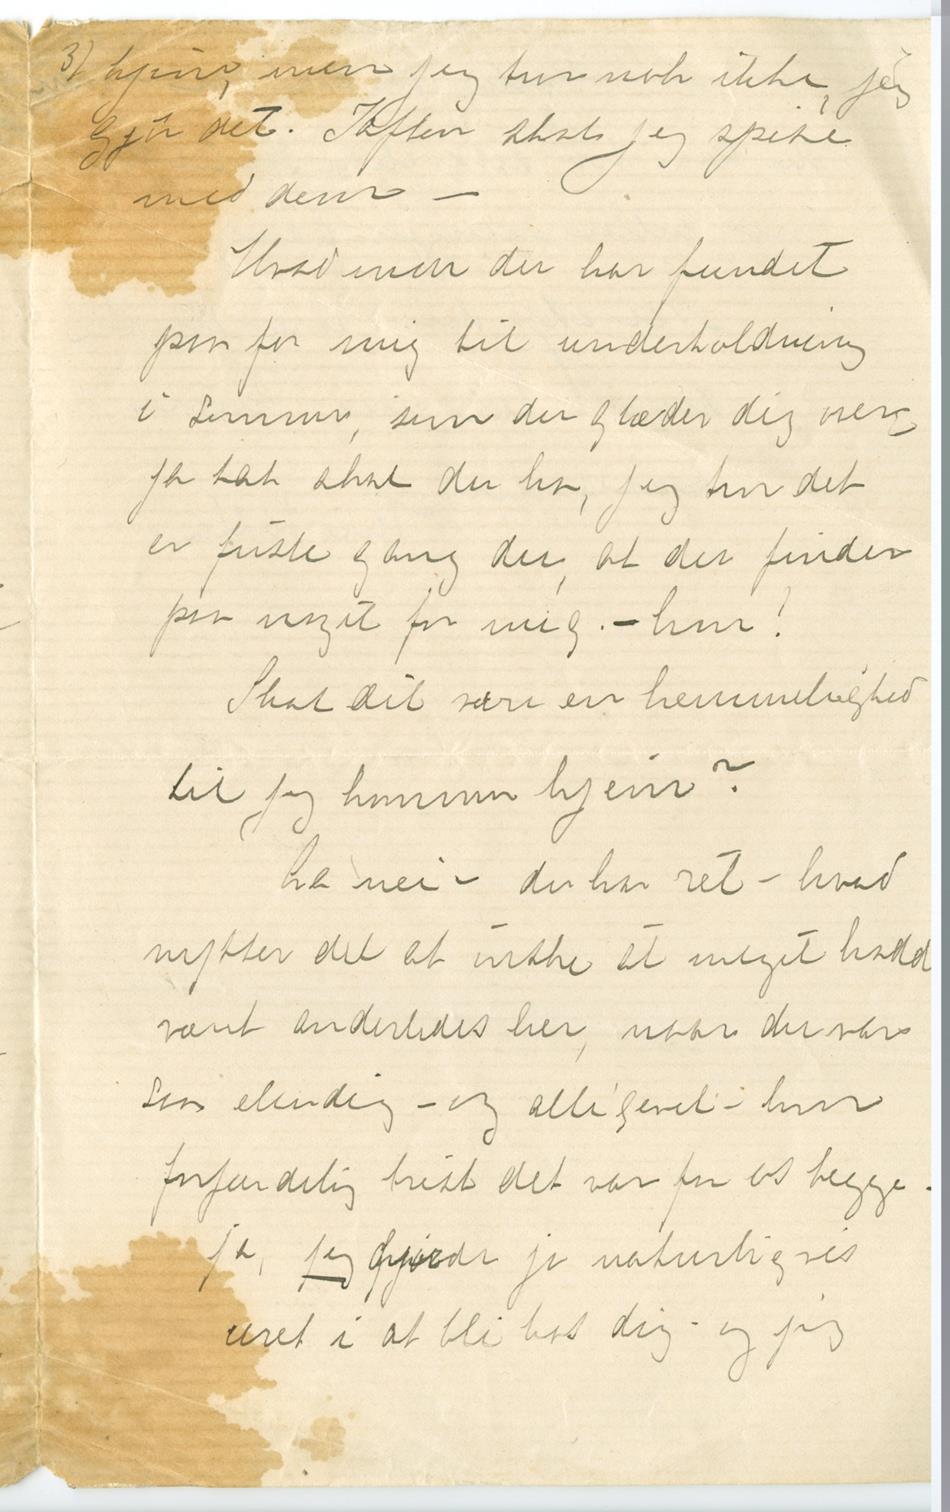 3) hjem, men jeg tror nok ikke, jeg
gjør det. Iaften skal jeg spise
med dem —
Hvad mon du har fundet
paa for mig til underholdning
i sommer, som du glæder dig over,
ja tak skal du ha, jeg tror det
er første gang du, at du finder
paa noget for mig. – hvor!
Skal det være en hemmelighed
til jeg kommer hjem?
Aa nei – du har ret – hvad
nytter det at ønske at meget hadde
vært anderledes her, naar du var
saa elendig – og alligevel – hvor
forfærdelig trist det var for os begge.
ja, jeg gjorde jo naturligvis
uret i at bli hos dig – og jeg